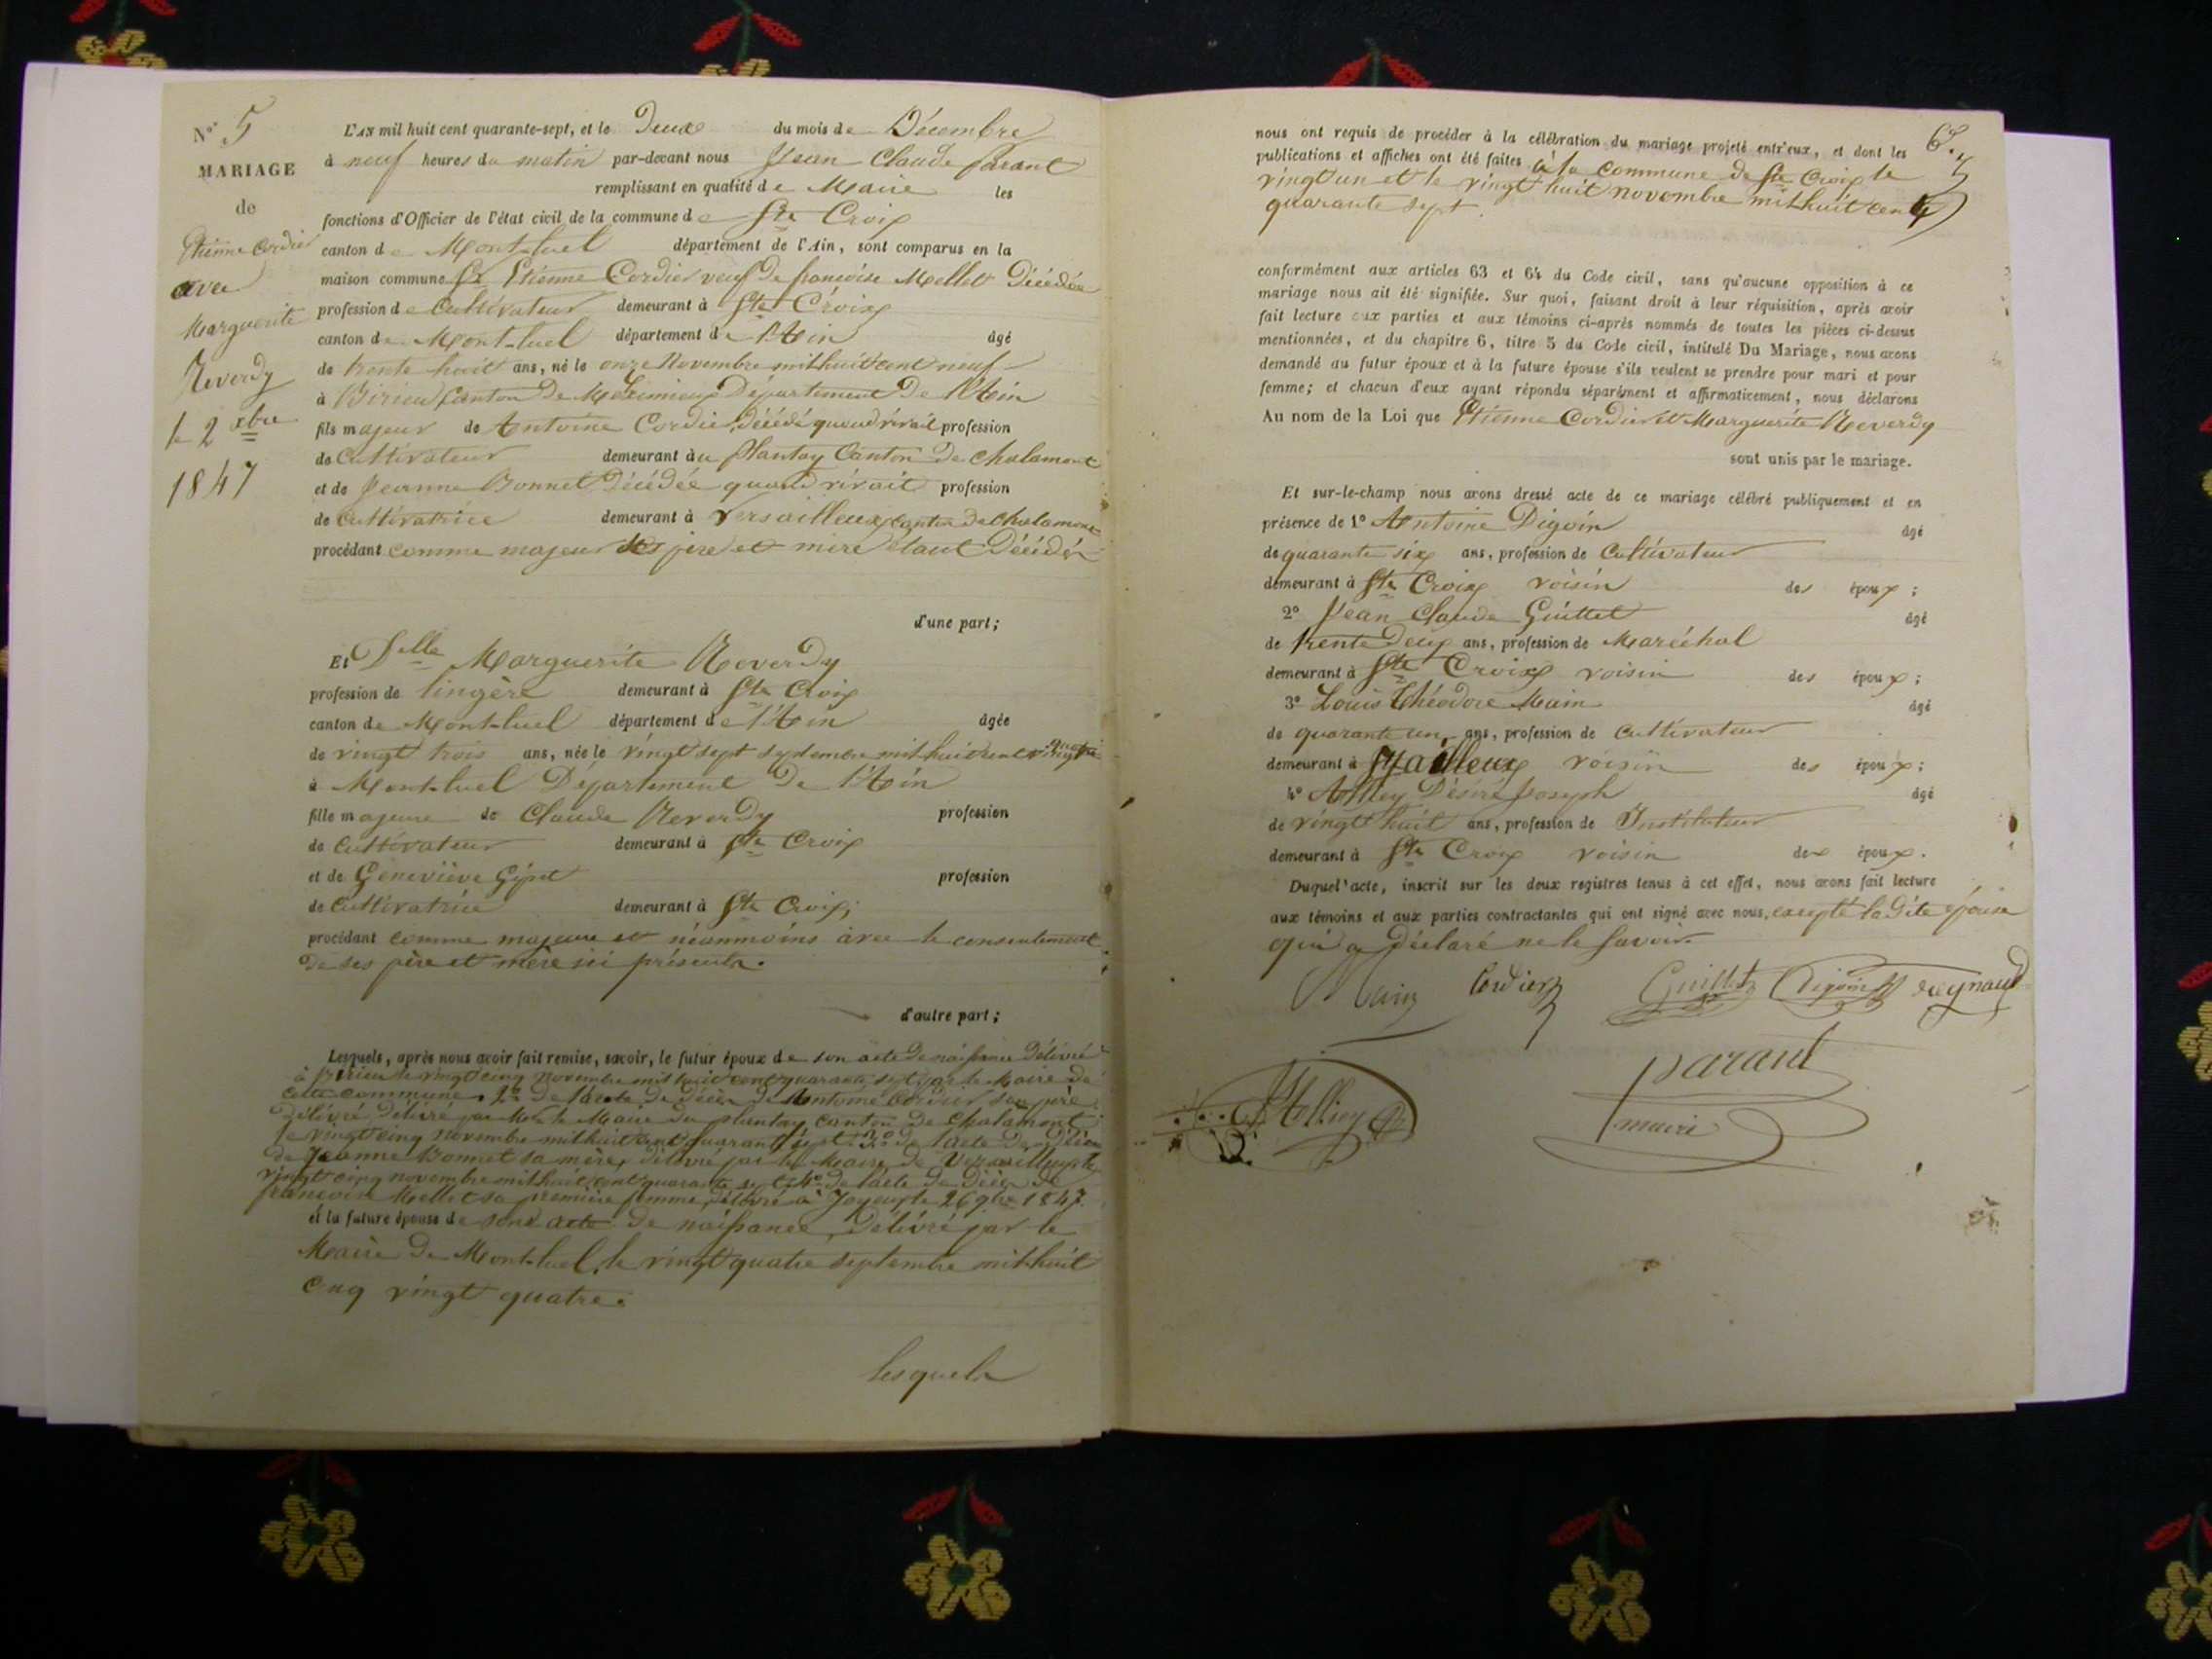 N° 5
MARIAGE
de
Etienne Cordier
avec
Marguerite
Reverdy
le 2 xbre
1847
L'AN mil huit cent quarante-sept, et le Deux du mois de Décembre
à neuf heures du matin par-devant nous Jean Claude Parant
remplissant en qualité de Maire les
fonctions d'Officier de l'état civil de la commune de Ste Croix
canton de Mont-luel département de l'Ain, sont comparus en la
maison commune Sr Etienne Cordier veuf de françoise Mellet Décédée
profession de Cultivateur demeurant à Ste Croix
canton de Mont-luel département de l'Ain âgé
de trente huit ans, né le onze Novembre mil huit cent neuf
à Birieu, Canton de Meximieux Département De l'Ain
fils majeur de Antoine Cordier, décédé quand vivait profession
de Cultivateur demeurant à u Plantay Canton De Chalamont
et de Jeanne Bonnet Décédée quand vivait profession
de Cultivatrice demeurant à Versailleux canton de Chalamont
procédant comme majeur ses père et mère étant Décédés
d'une part;
Et Delle Marguerite Reverdy
profession de lingère demeurant à Ste Croix
canton de Mont-luel département de l'Ain âgée
de vingt trois ans, née le vingt sept septembre mil huit cent vingt quatre
à Mont-luel Département De l'Ain
fille majeure de Claude Reverdy profession
de Cultivateur demeurant à Ste Croix
et de Geneviève profession
de Cultivatrice demeurant à Ste Croix;
procédant comme majeure et néanmoins avec le consentement
de ses père et mère ici présents.
d'autre part;
Lesquels, après nous avoir fait remise, savoir, le futur époux de son acte de naissance Délivré
à Birieu le vingt cinq novembre mil huit cent quarante sept par le Maire de
cette commune. 2° de l'acte de décès de Antoine Cordier son père
délivré Délivré par Mr le Maire du Plantay canton De Chalamont
le vingt cinq novembre mil huit cent quarante sept. 3° de l'acte de décès
de Jeanne Bonnet sa mère, délivré par le Maire de Versailleux le
vingt cinq novembre mil huit cent quarante sept 4° de l'acte de Décès de
françoise Mellet sa première femme, délivré à Joyeux le 26 9bre 1847.
et la future épouse de son acte de naissance, Délivré par le
Maire De Mont-luel, le vingt quatre septembre mil huit
cent vingt quatre.
lesquels
6.
nous ont requis de procéder à la célébration du mariage projeté entr'eux, et dont les
publications et affiches ont été faites à la commune de Ste Croix le
vingt un et le vingt huit novembre mil huit cent
quarante sept.
conformément aux articles 63 et 64 du Code civil, sans qu'aucune opposition à ce
mariage nous ait été signifiée. Sur quoi, faisant droit à leur réquisition, après avoir
fait lecture aux parties et aux témoins ci-après nommés de toutes les pièces ci-dessus
mentionnées, et du chapitre 6, titre 5 du Code civil, intitulé Du Mariage, nous avons
demandé au futur époux et à la future épouse s'ils veulent se prendre pour mari et pour
femme; et chacun d'eux ayant répondu séparément et affirmativement, nous déclarons
Au nom de la Loi que Etienne Cordier et Marguerite Reverdy
sont unis par le mariage.
Et sur-le-champ nous avons dressé acte de ce mariage célébré publiquement et en
présence de 1° Antoine Digoin âgé
de quarante six ans, profession de Cultivateur
demeurant à Ste Croix voisin des époux;
2° Jean Claude Guillet âgé
de trente Deux ans, profession de Maréchal
demeurant à Ste Croix voisin des époux;
3° Louis Théodore Main âgé
de quarante un, ans, profession de Cultivateur
demeurant à voisin des époux;
4° Désiré Joseph âgé
de vingt huit ans, profession de Instituteur
demeurant à Ste Croix voisin des époux.
Duquel acte, inscrit sur les deux registres tenus à cet effet, nous avons fait lecture
aux témoins et aux parties contractantes qui ont signé avec nous, excepté la dite épouse
qui a déclaré ne le savoir.
Main Cordier Guillet Digoin Reynaud
Parant
maire